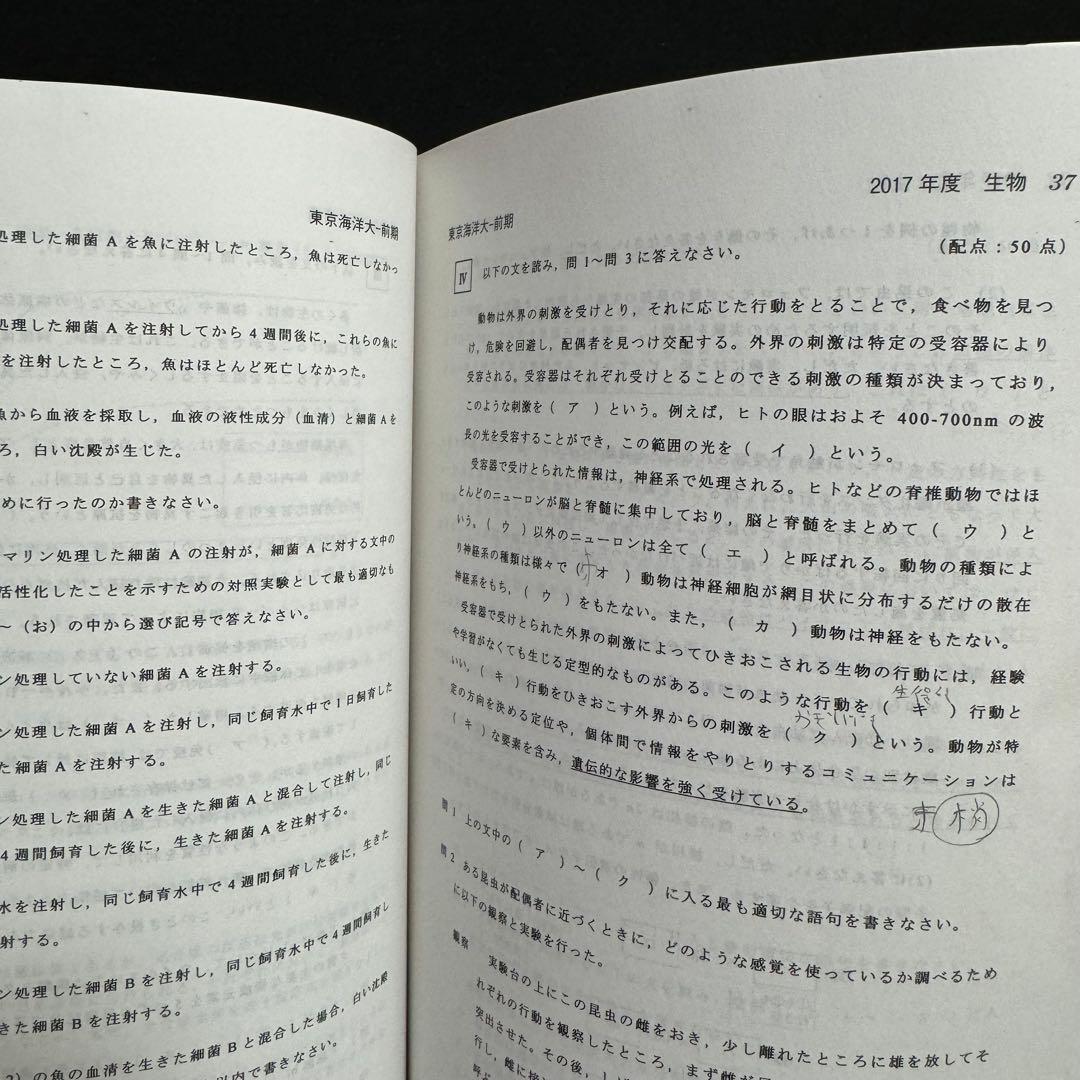 東京海洋大-前期
処理した細菌 A を魚に注射したところ，魚は死亡しなかっ
処理した細菌 A を注射してから 4 週間後に，これらの魚に
を注射したところ，魚はほとんど死亡しなかった。
魚から血液を採取し，血液の液性成分（血清）と細菌 A を
ろ，白い沈殿が生じた。
めに行ったのか書きなさい。
マリン処理した細菌 A の注射が，細菌 A に対する文中の
活性化したことを示すための対照実験として最も適切なも
～（お）の中から選び記号で答えなさい。
ン処理していない細菌 A を注射する。
ン処理した細菌 A を注射し，同じ飼育水中で 1 日飼育した
た細菌 A を注射する。
ン処理した細菌 A を生きた細菌 A と混合して注射し，同じ
4 週間飼育した後に，生きた細菌 A を注射する。
水を注射し，同じ飼育水中で 4 週間飼育した後に，生きた
射する。
ン処理した細菌 B を注射し，同じ飼育水中で 4 週間飼育し
きた細菌 B を注射する。
2）の魚の血清を生きた細菌 B と混合した場合，白い沈殿
以内で書きなさい。
2017 年度　生物　37
東京海洋大-前期
（配点：50 点）
Ⅳ　以下の文を読み，問 1～問 3 に答えなさい。
動物は外界の刺激を受けとり，それに応じた行動をとることで，食べ物を見つ
け，危険を回避し，配偶者を見つけ交配する。外界の刺激は特定の受容器により
受容される。受容器はそれぞれ受けとることのできる刺激の種類が決まっており，
このような刺激を（　ア　）という。例えば，ヒトの眼はおよそ 400-700nm の波
長の光を受容することができ，この範囲の光を（　イ　）という。
受容器で受けとられた情報は，神経系で処理される。ヒトなどの脊椎動物ではほ
とんどのニューロンが脳と脊髄に集中しており，脳と脊髄をまとめて（　ウ　）と
いう。（　ウ　）以外のニューロンは全て（　エ　）と呼ばれる。動物の種類によ
り神経系の種類は様々で（　オ　）動物は神経細胞が網目状に分布するだけの散在
神経系をもち，（　ウ　）をもたない。また，（　カ　）動物は神経をもたない。
受容器で受けとられた外界の刺激によってひきおこされる生物の行動には，経験
や学習がなくても生じる定型的なものがある。このような行動を（　キ　）行動と
いい，（　キ　）行動をひきおこす外界からの刺激を（　ク　）という。動物が特
定の方向を決める定位や，個体間で情報をやりとりするコミュニケーションは
（　キ　）な要素を含み，遺伝的な影響を強く受けている。
梢
問 1　上の文中の（　ア　）～（　ク　）に入る最も適切な語句を書きなさい。
問 2　ある昆虫が配偶者に近づくときに，どのような感覚を使っているか調べるため
に以下の観察と実験を行った。
観察
実験台の上にこの昆虫の雌をおき，少し離れたところに雄を放してそ
れぞれの行動を観察したところ，まず雌が
突出させた。その後，
行し，雌に